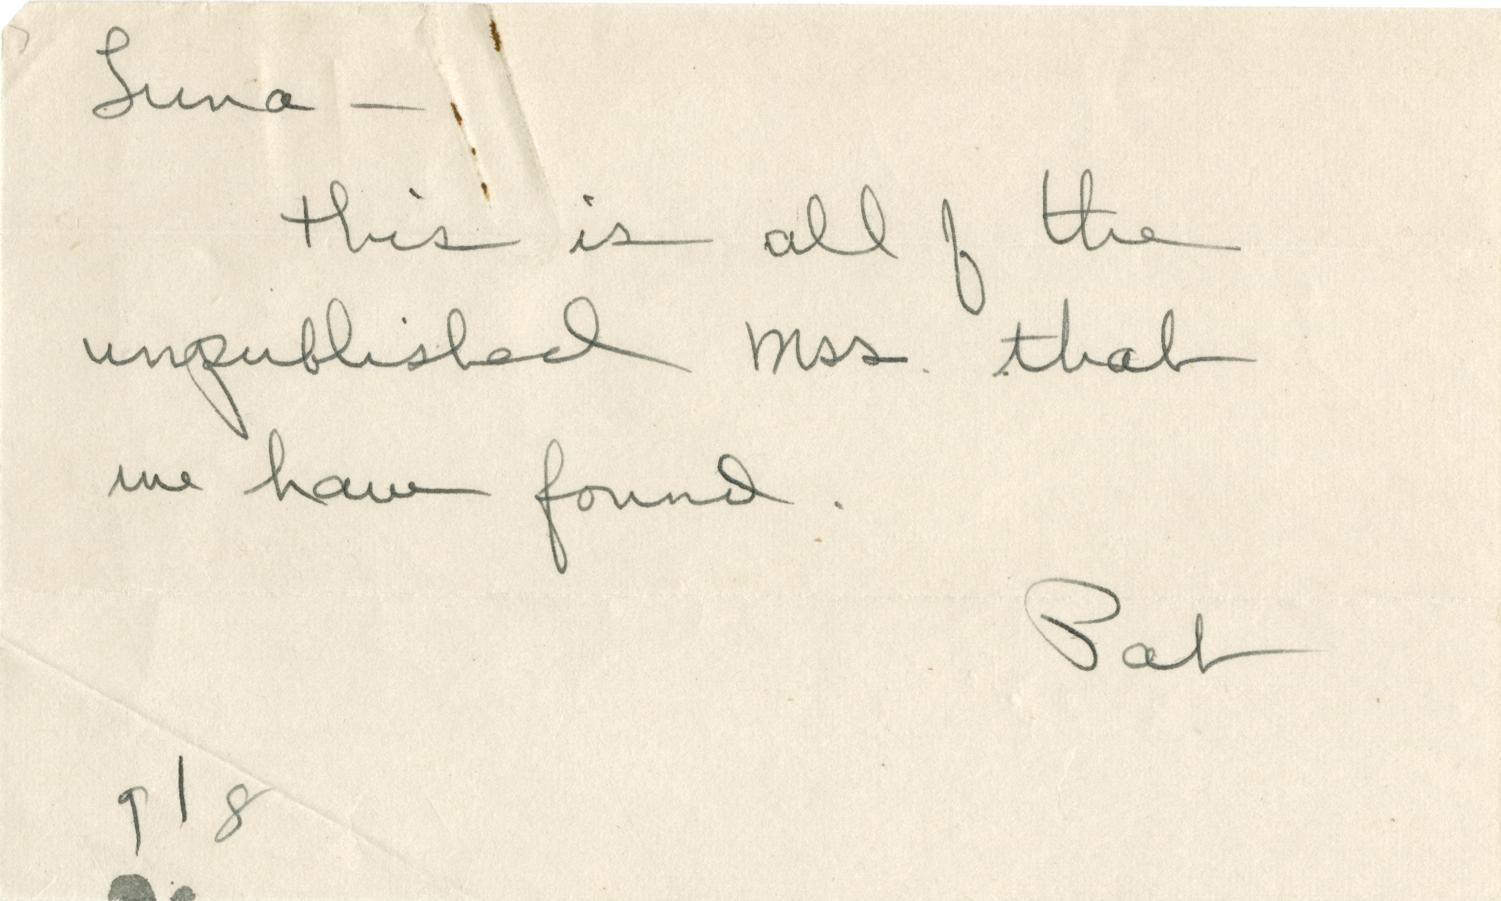 Luna —
this is all of the
unpublished Mss. that
we have found.
Pat
918